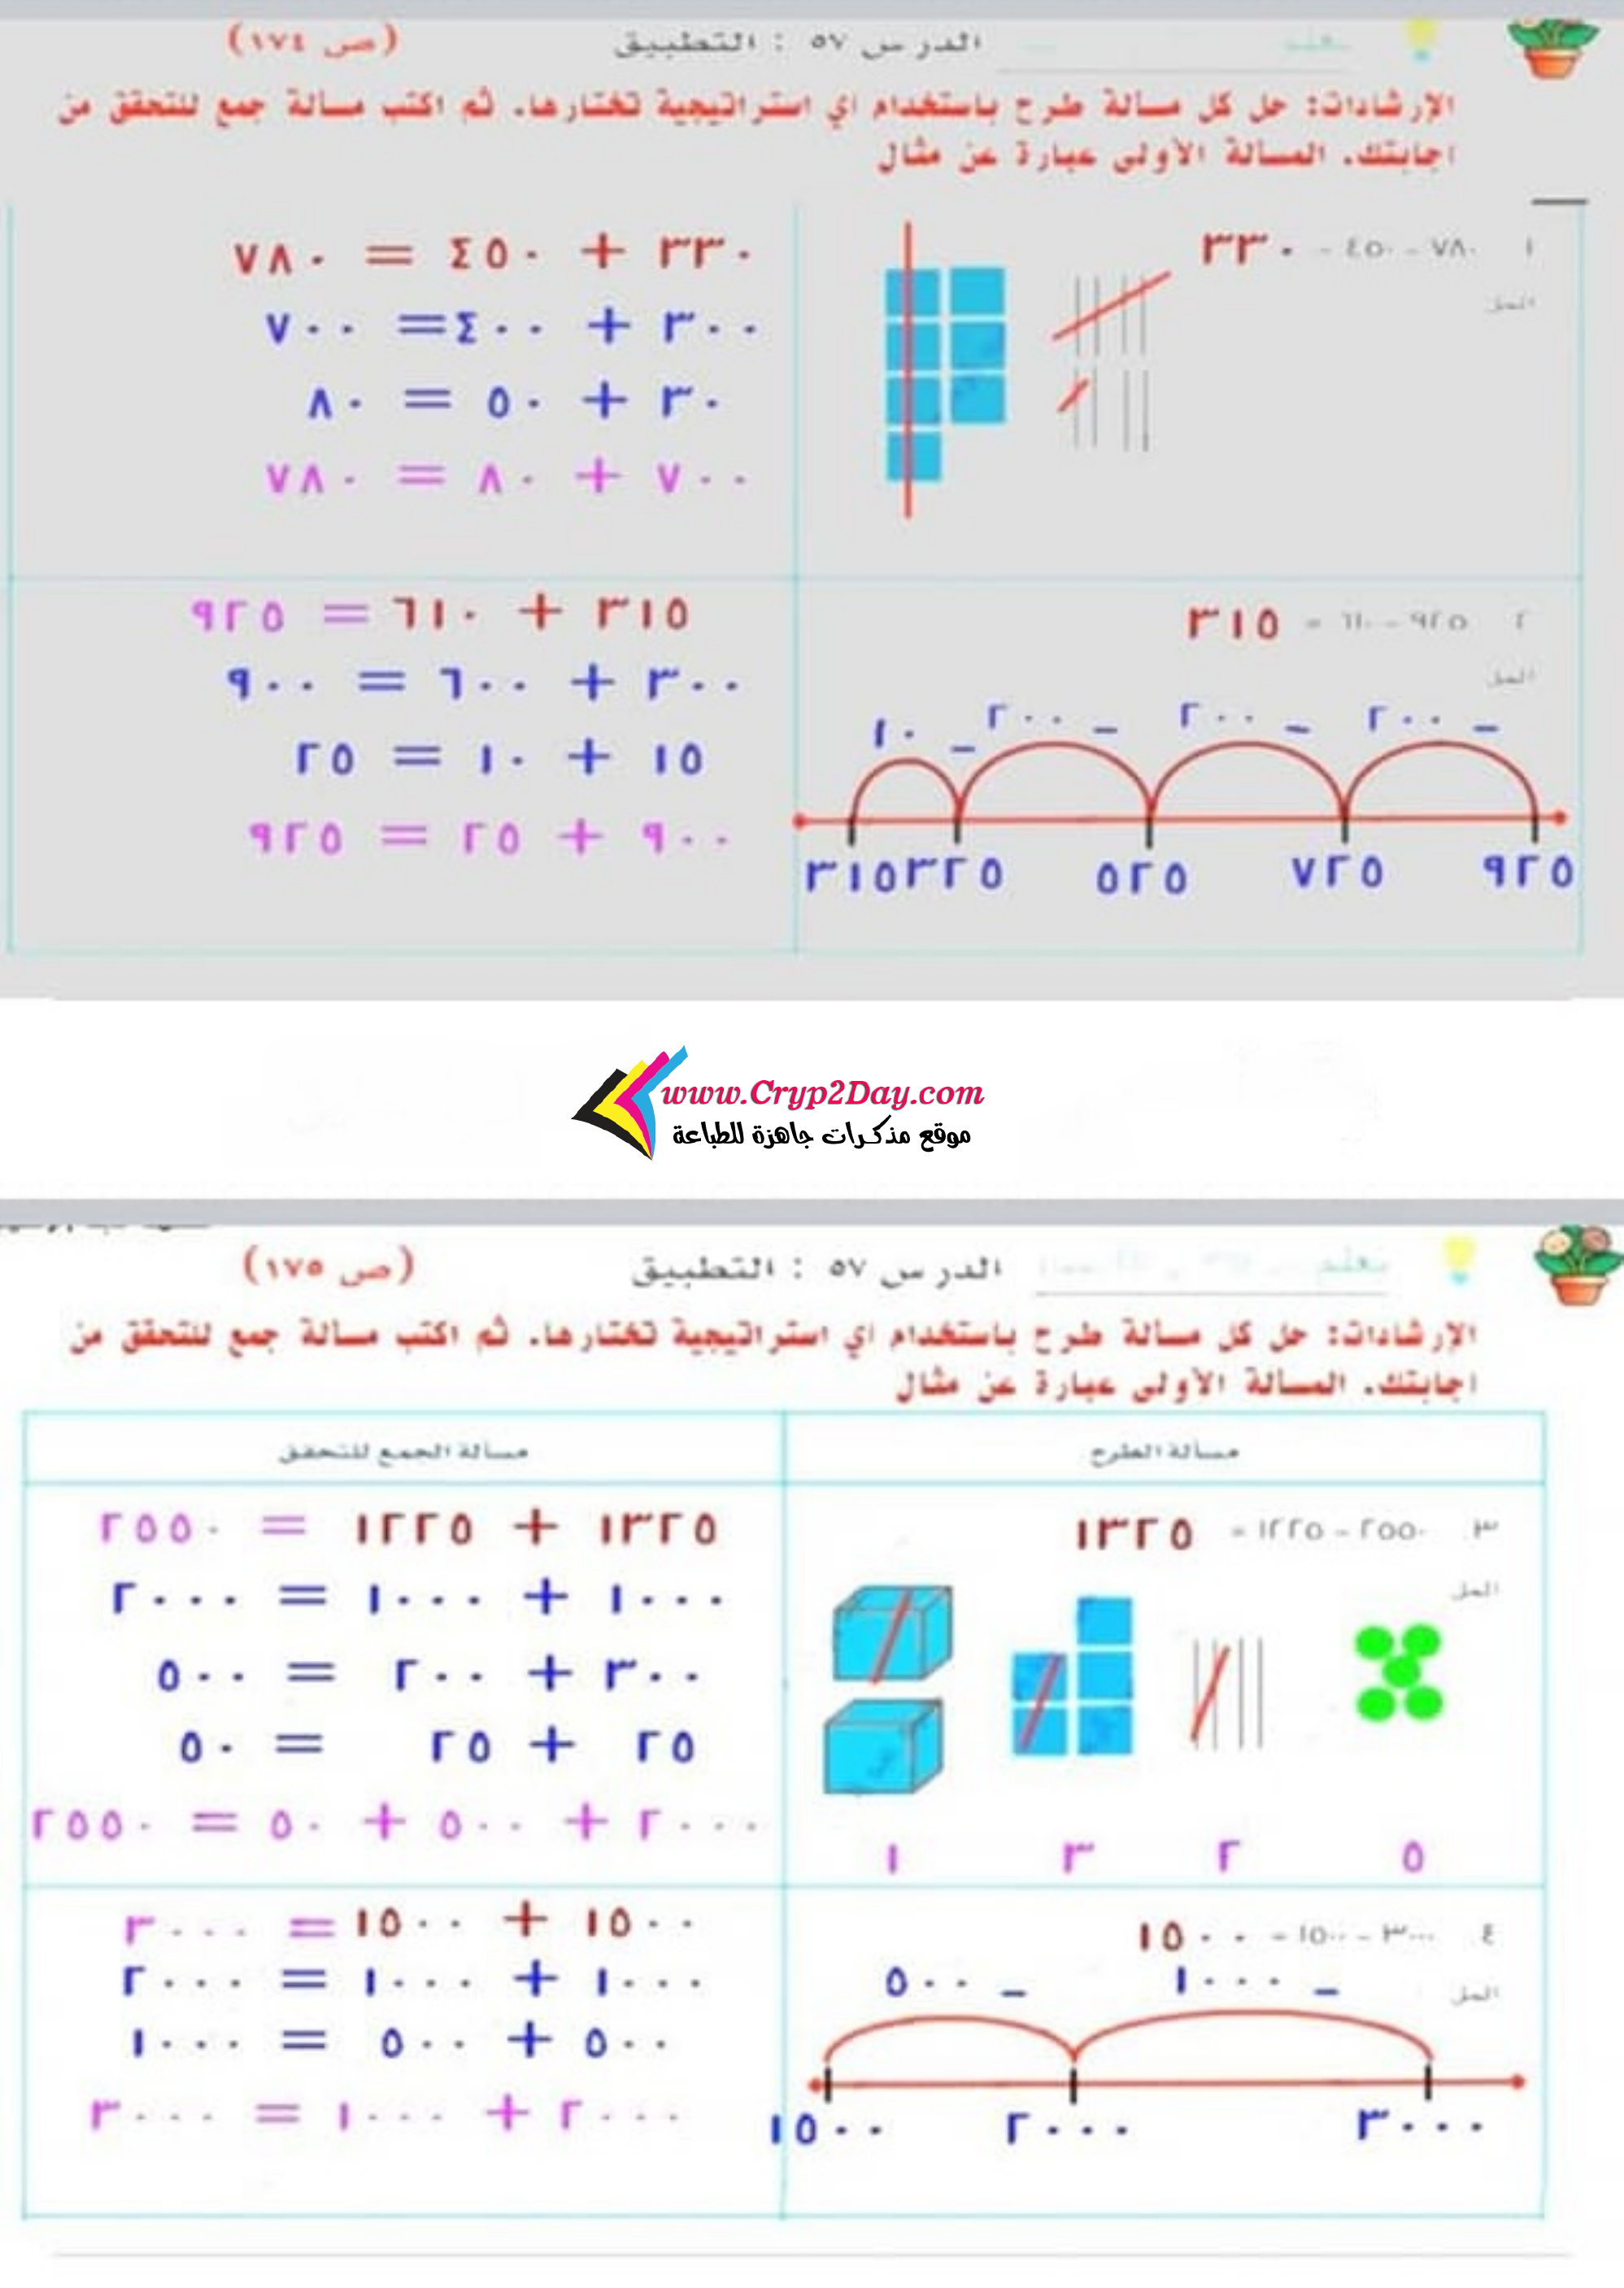 الدرس ٥٧ : التطبيق (ص ١٧٤)
الإرشادات: حل كل مسألة طرح باستخدام اي استراتيجية تختارها. ثم اكتب مسألة جمع للتحقق من
اجابتك. المسألة الأولى عبارة عن مثال
١ ٧٨٠ - ٤٥٠ = ٣٣٠
الحل
٣٣٠ + ٤٥٠ = ٧٨٠
٣٠٠ + ٤٠٠ = ٧٠٠
٣٠ + ٥٠ = ٨٠
٧٠٠ + ٨٠ = ٧٨٠
٢ ٩٢٥ - ٦١٠ = ٣١٥
الحل
- ٢٠٠ - ٢٠٠ - ٢٠٠ - ١٠
٩٢٥ ٧٢٥ ٥٢٥ ٣٢٥ ٣١٥
٣١٥ + ٦١٠ = ٩٢٥
٣٠٠ + ٦٠٠ = ٩٠٠
١٥ + ١٠ = ٢٥
٩٠٠ + ٢٥ = ٩٢٥
www.Cryp2Day.com
موقع مذكرات جاهزة للطباعة
الدرس ٥٧ : التطبيق (ص ١٧٥)
الإرشادات: حل كل مسألة طرح باستخدام اي استراتيجية تختارها. ثم اكتب مسألة جمع للتحقق من
اجابتك. المسألة الأولى عبارة عن مثال
مسألة الطرح
مسألة الجمع للتحقق
٣ ٢٥٥٠ - ١٢٢٥ = ١٣٢٥
الحل
٥ ٢ ٣ ١
١٣٢٥ + ١٢٢٥ = ٢٥٥٠
١٠٠٠ + ١٠٠٠ = ٢٠٠٠
٣٠٠ + ٢٠٠ = ٥٠٠
٢٥ + ٢٥ = ٥٠
٢٠٠٠ + ٥٠٠ + ٥٠ = ٢٥٥٠
٤ ٣٠٠٠ - ١٥٠٠ = ١٥٠٠
الحل
- ١٠٠٠ - ٥٠٠
٣٠٠٠ ٢٠٠٠ ١٥٠٠
١٥٠٠ + ١٥٠٠ = ٣٠٠٠
١٠٠٠ + ١٠٠٠ = ٢٠٠٠
٥٠٠ + ٥٠٠ = ١٠٠٠
٢٠٠٠ + ١٠٠٠ = ٣٠٠٠